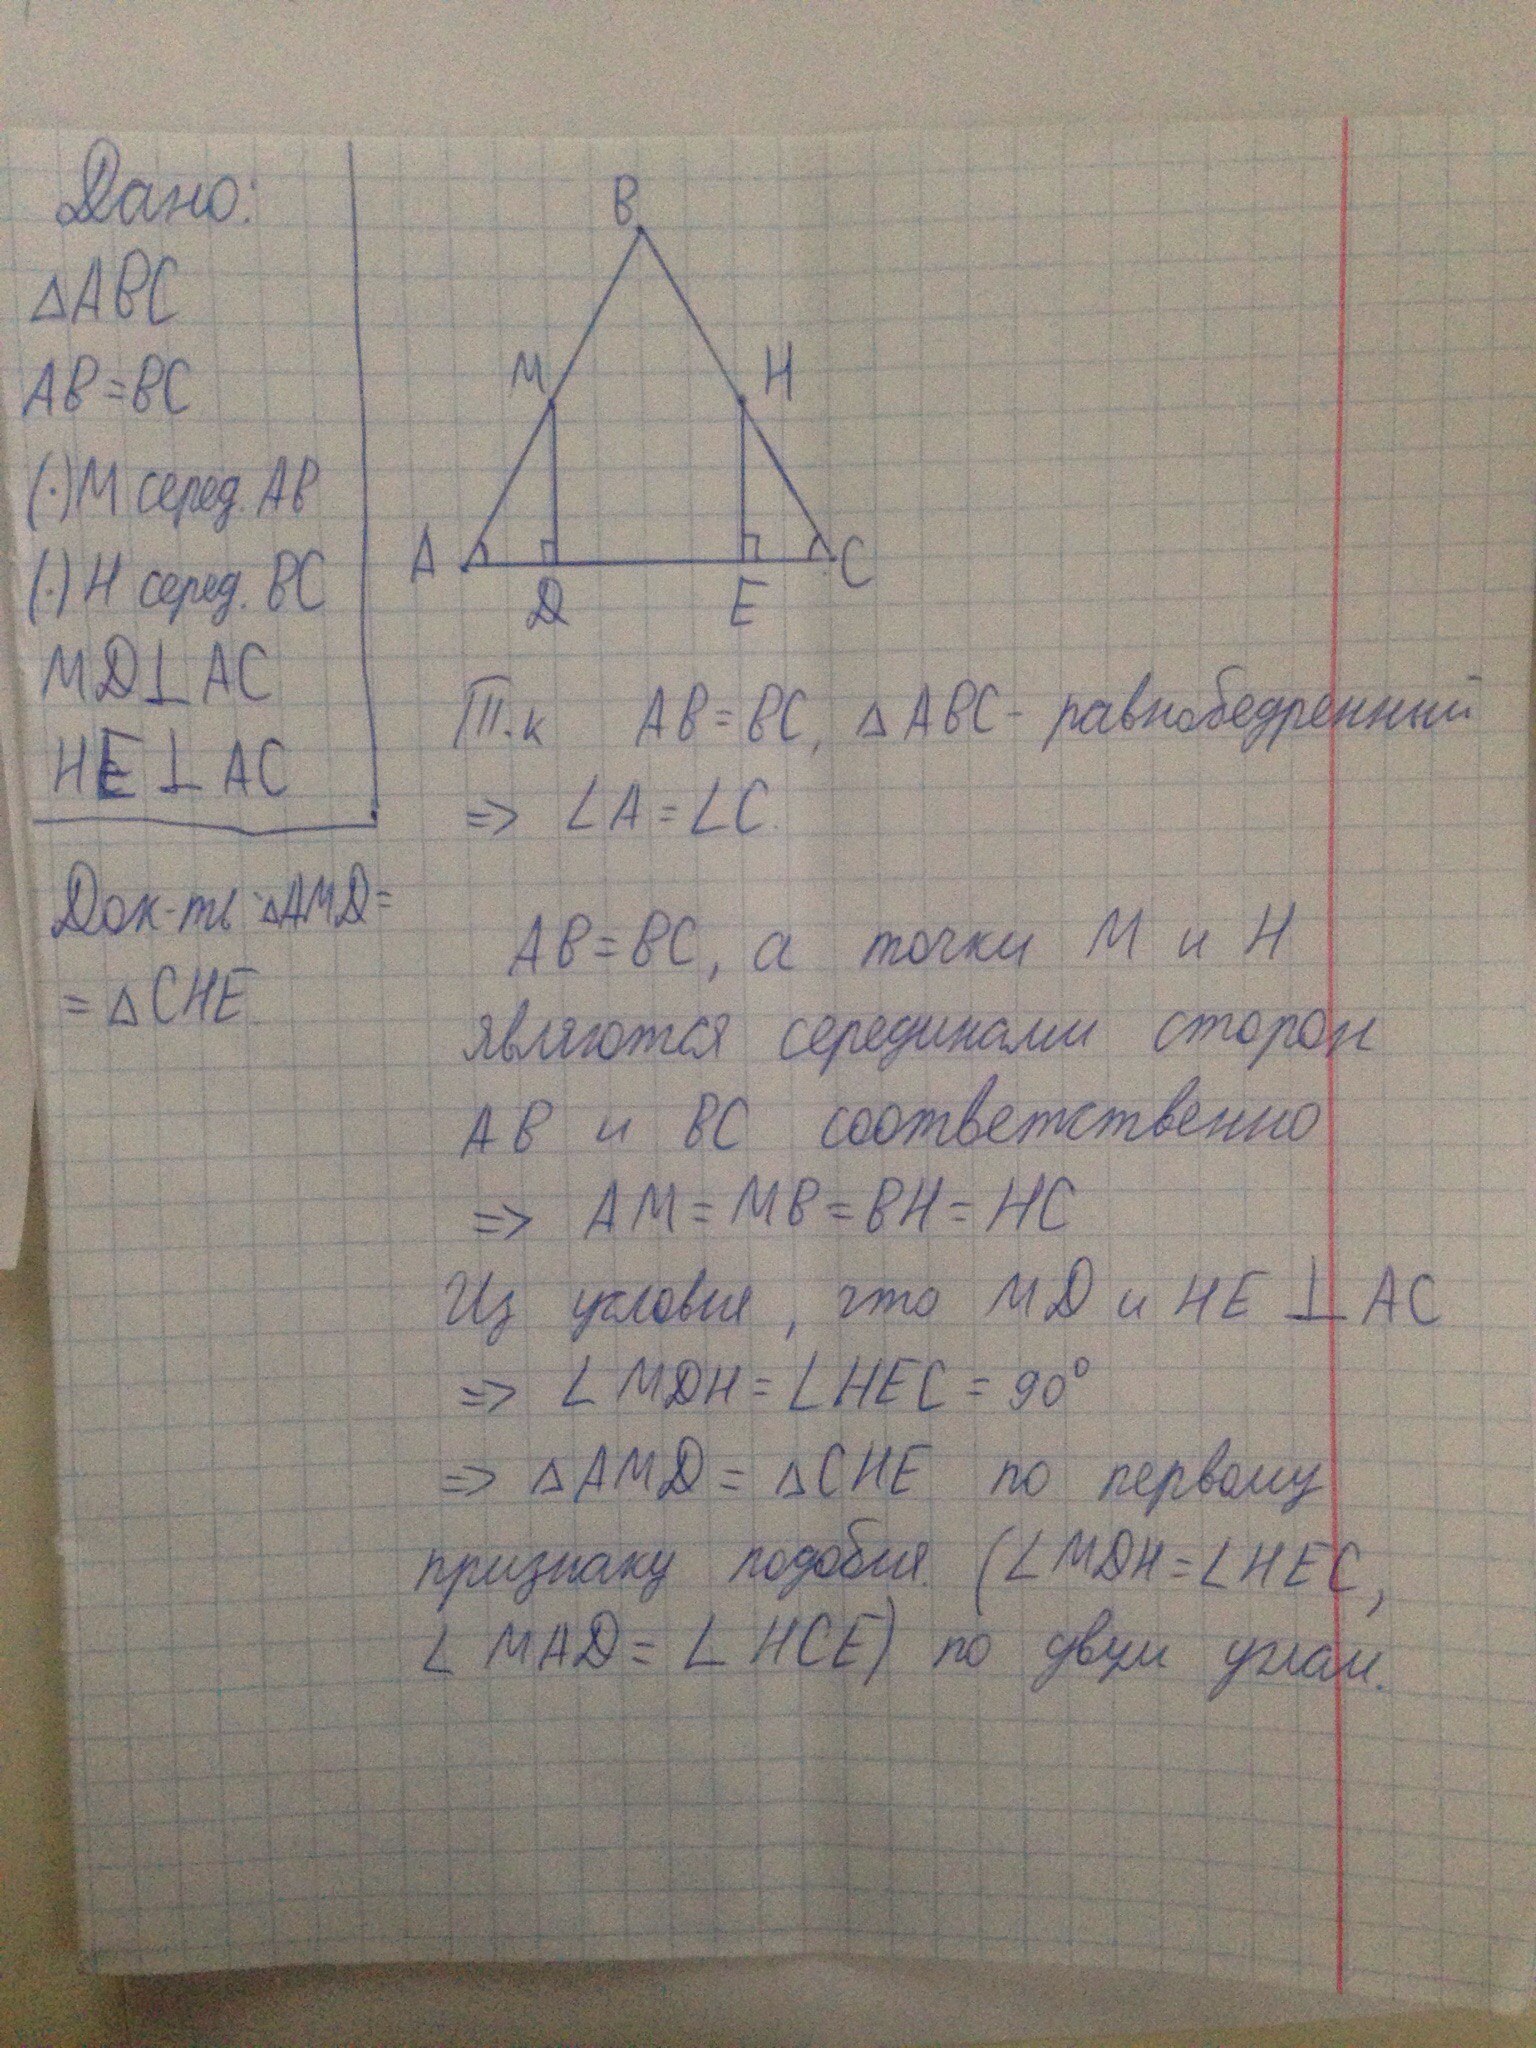 Дано:
△ABC
AB=BC
(·)M серед. AB
(·)H серед. BC
MD⊥AC
HE⊥AC
Док-ть △AMD=
=△CHE.
B
M
H
A
D
E
C
Т.к AB=BC, △ABC- равнобедренный
=> ∠A=∠C.
AB=BC, а точки M и H
являются серединами сторон
AB и BC соответственно
=> AM=MB=BH=HC
Из условия, что MD и HE ⊥ AC
=> ∠MDH=∠HEC=90°
=> △AMD=△CHE по первому
признаку подобия. (∠MDH=∠HEC,
∠MAD=∠HCE) по двум углам.